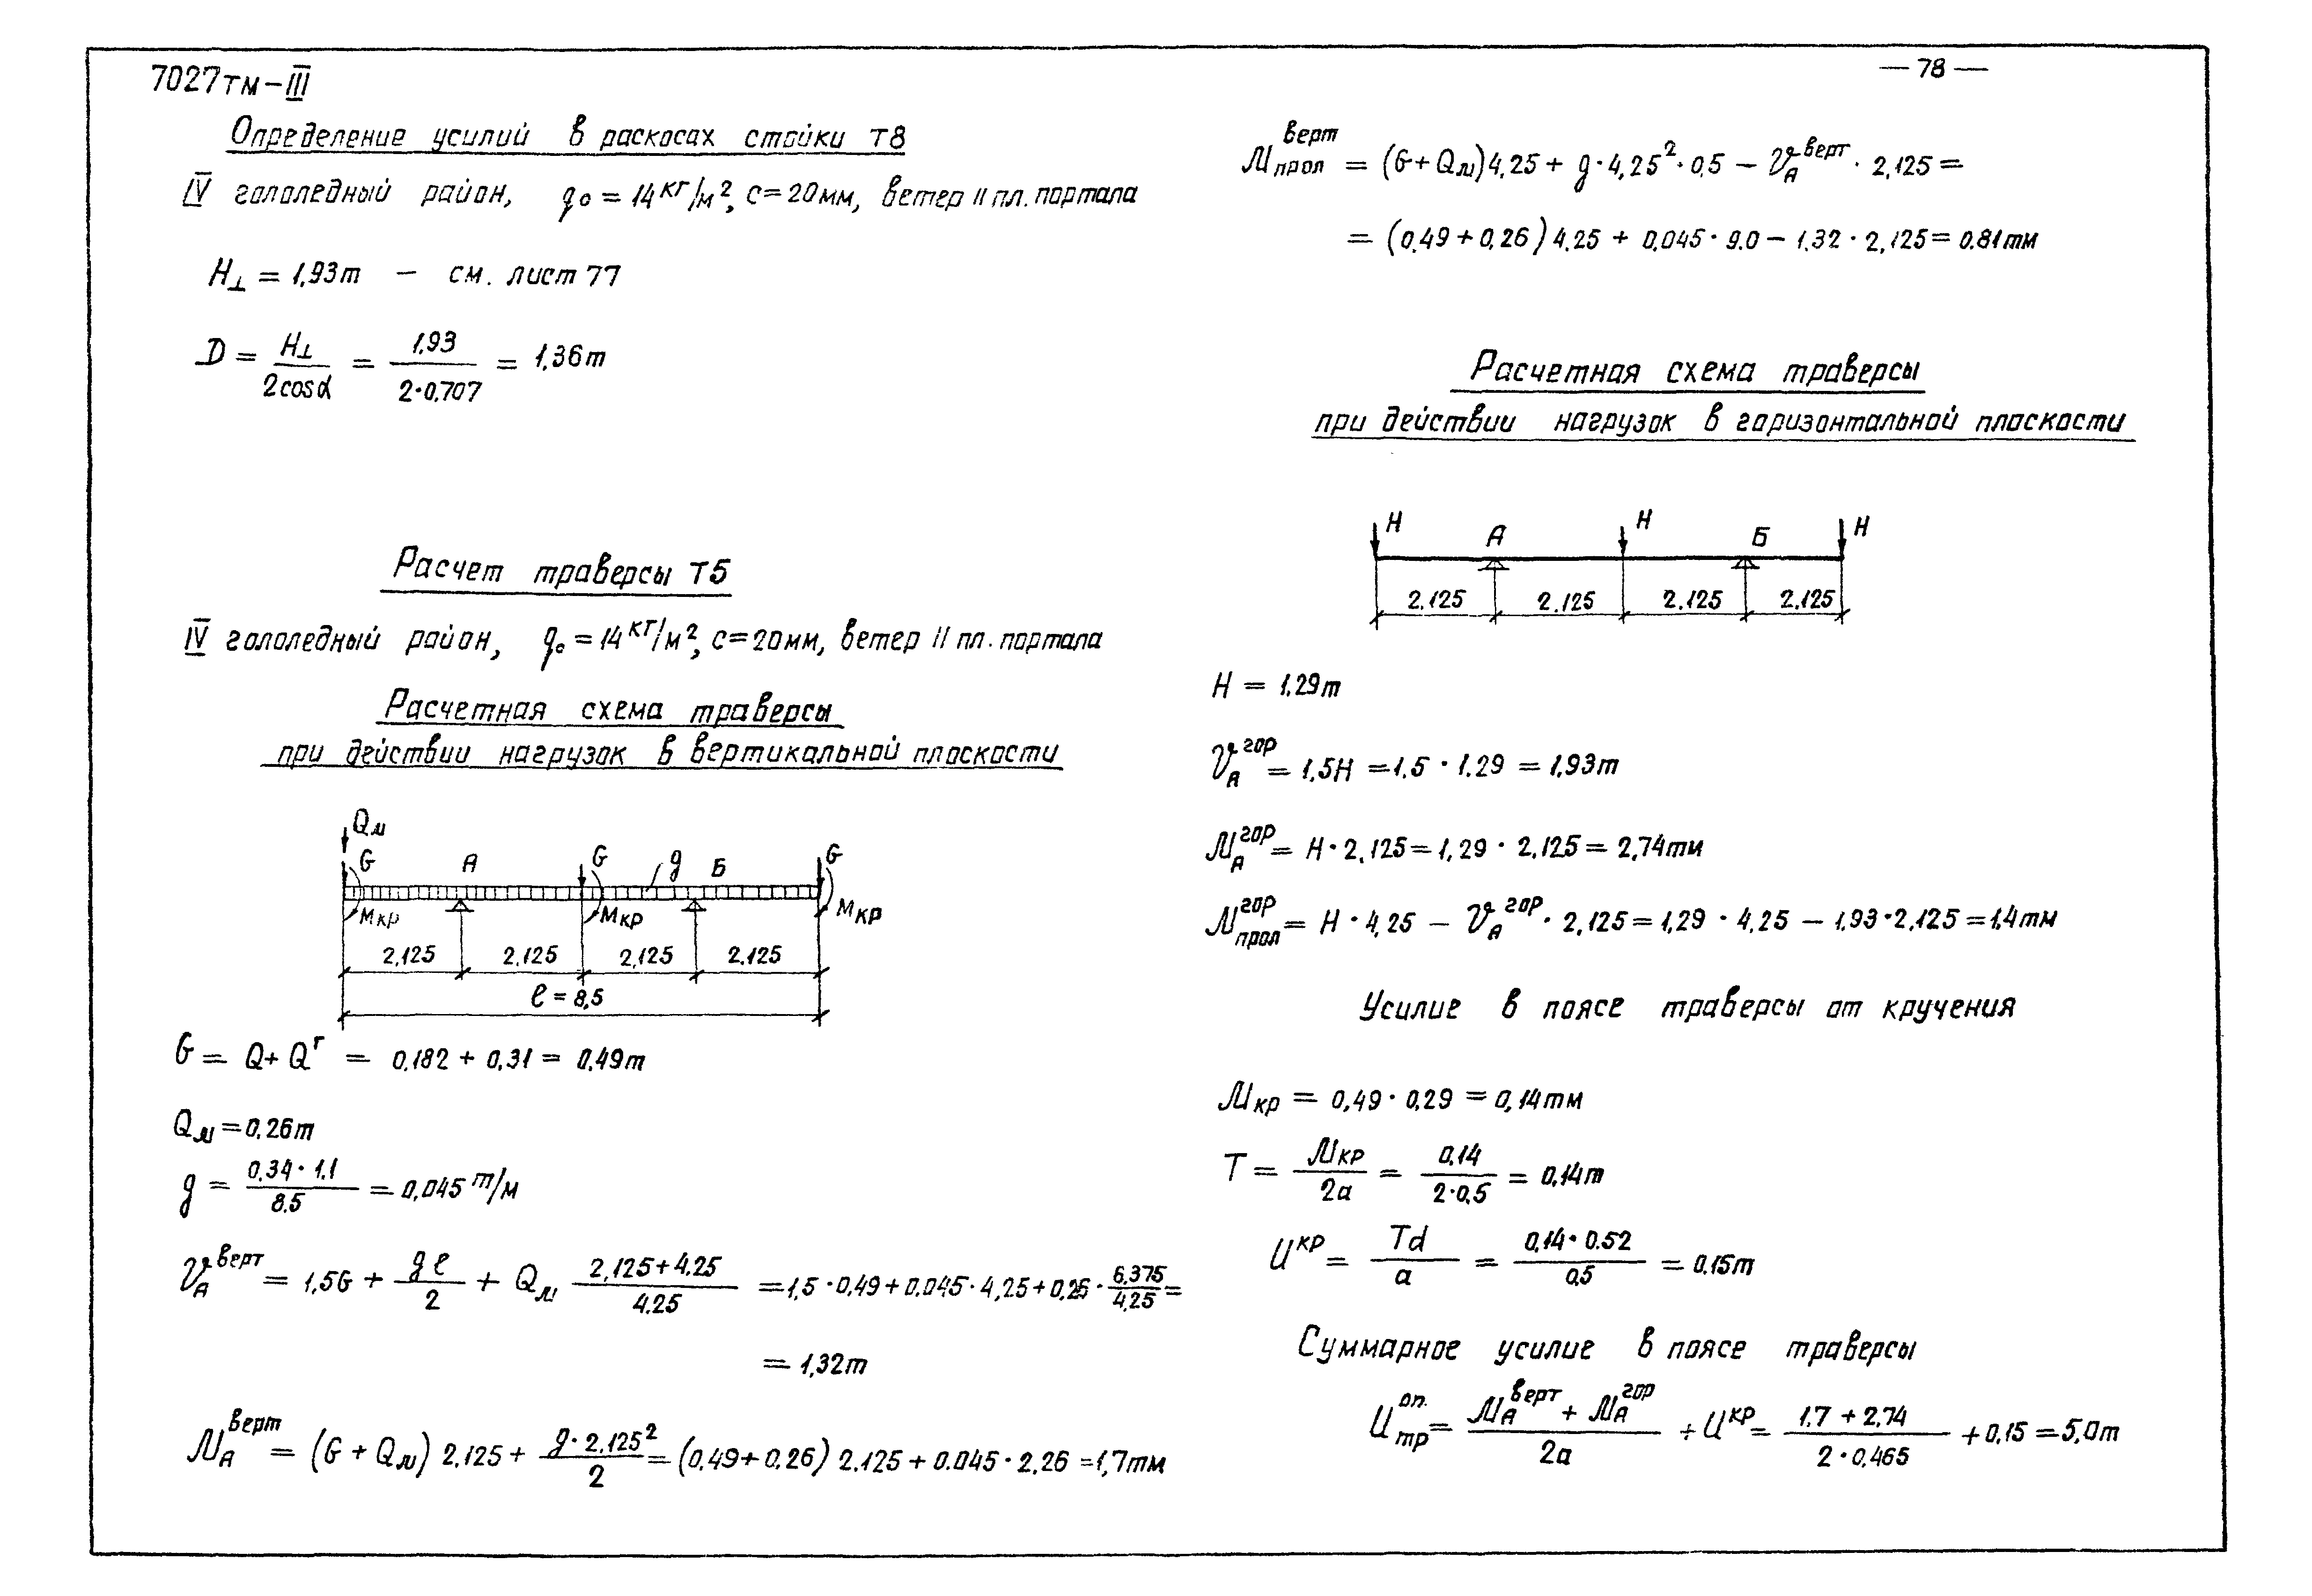 7027тм-III
Определение усилий в раскосах стойки Т8
IV гололедный район, q₀ = 14 кг/м², с=20мм, ветер II пл. портала
H⊥ = 1,93т - см. лист 77
D = H⊥ / 2cosα = 1,93 / 2·0,707 = 1,36т
Расчет траверсы Т5
IV гололедный район, q₀ = 14 кг/м², с=20мм, ветер II пл. портала
Расчетная схема траверсы
при действии нагрузок в вертикальной плоскости
Qм
G A G g Б G
Мкр Мкр Мкр
2,125 2,125 2,125 2.125
ℓ = 8,5
G = Q + Qᴦ = 0,182 + 0,31 = 0,49т
Qм = 0,26т
g = 0,34·1,1 / 8.5 = 0,045 т/м
V_A^верт = 1,5G + gℓ/2 + Qм (2,125+4.25)/4.25 = 1,5·0,49 + 0.045·4,25 + 0,26·6,375/4,25 =
= 1,32т
М_A^верт = (G + Qм) 2,125 + g·2,125²/2 = (0,49+0,26) 2,125 + 0.045·2,26 = 1,7тм
— 78 —
М_прол^верт = (G+Qм)4,25 + g·4,25²·0,5 − V_A^верт·2,125 =
= (0,49+0,26)4,25 + 0,045·9.0 − 1,32·2,125 = 0.81тм
Расчетная схема траверсы
при действии нагрузок в горизонтальной плоскости
H A H Б H
2.125 2.125 2.125 2.125
H = 1,29т
V_A^гор = 1,5H = 1,5·1.29 = 1,93т
М_A^гор = H·2,125 = 1,29·2,125 = 2,74тм
М_прол^гор = H·4,25 − V_A^гор·2,125 = 1,29·4,25 − 1,93·2,125 = 1,4тм
Усилие в поясе траверсы от кручения
Мкр = 0,49·0,29 = 0,14тм
T = Мкр / 2a = 0,14 / 2·0,5 = 0,14т
U^кр = Td / a = 0,14·0.52 / 0,5 = 0.15т
Суммарное усилие в поясе траверсы
U_тр^оп. = (М_A^верт + М_A^гор) / 2a + U^кр = (1.7 + 2,74) / 2·0,465 + 0,15 = 5,0т